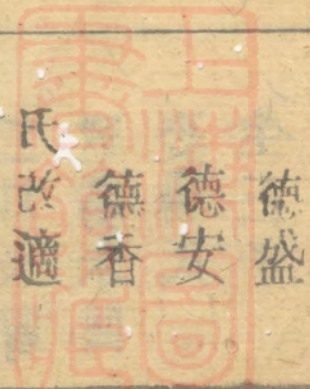 德盛
德安
德香
氏改適